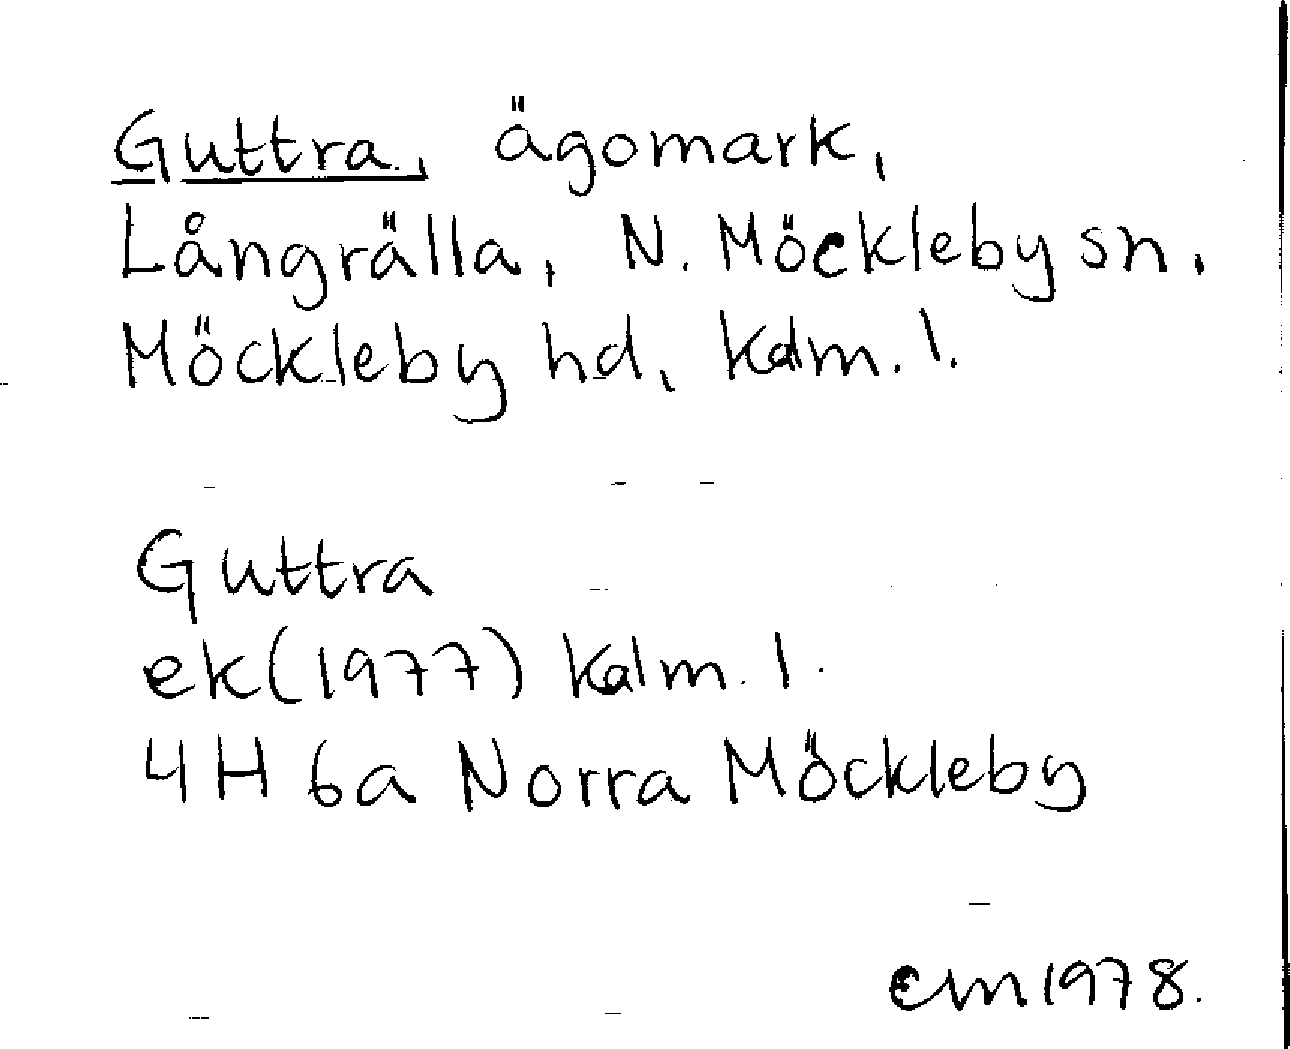 Guttra, ägomark,
Långrälla, N. Möckleby sn,
Möckleby hd, Kalm. l.
Guttra
ek (1977) Kalm. l.
4H 6a Norra Möckleby
em 1978.